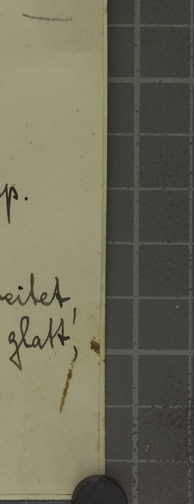 p.
eitet,
glatt,